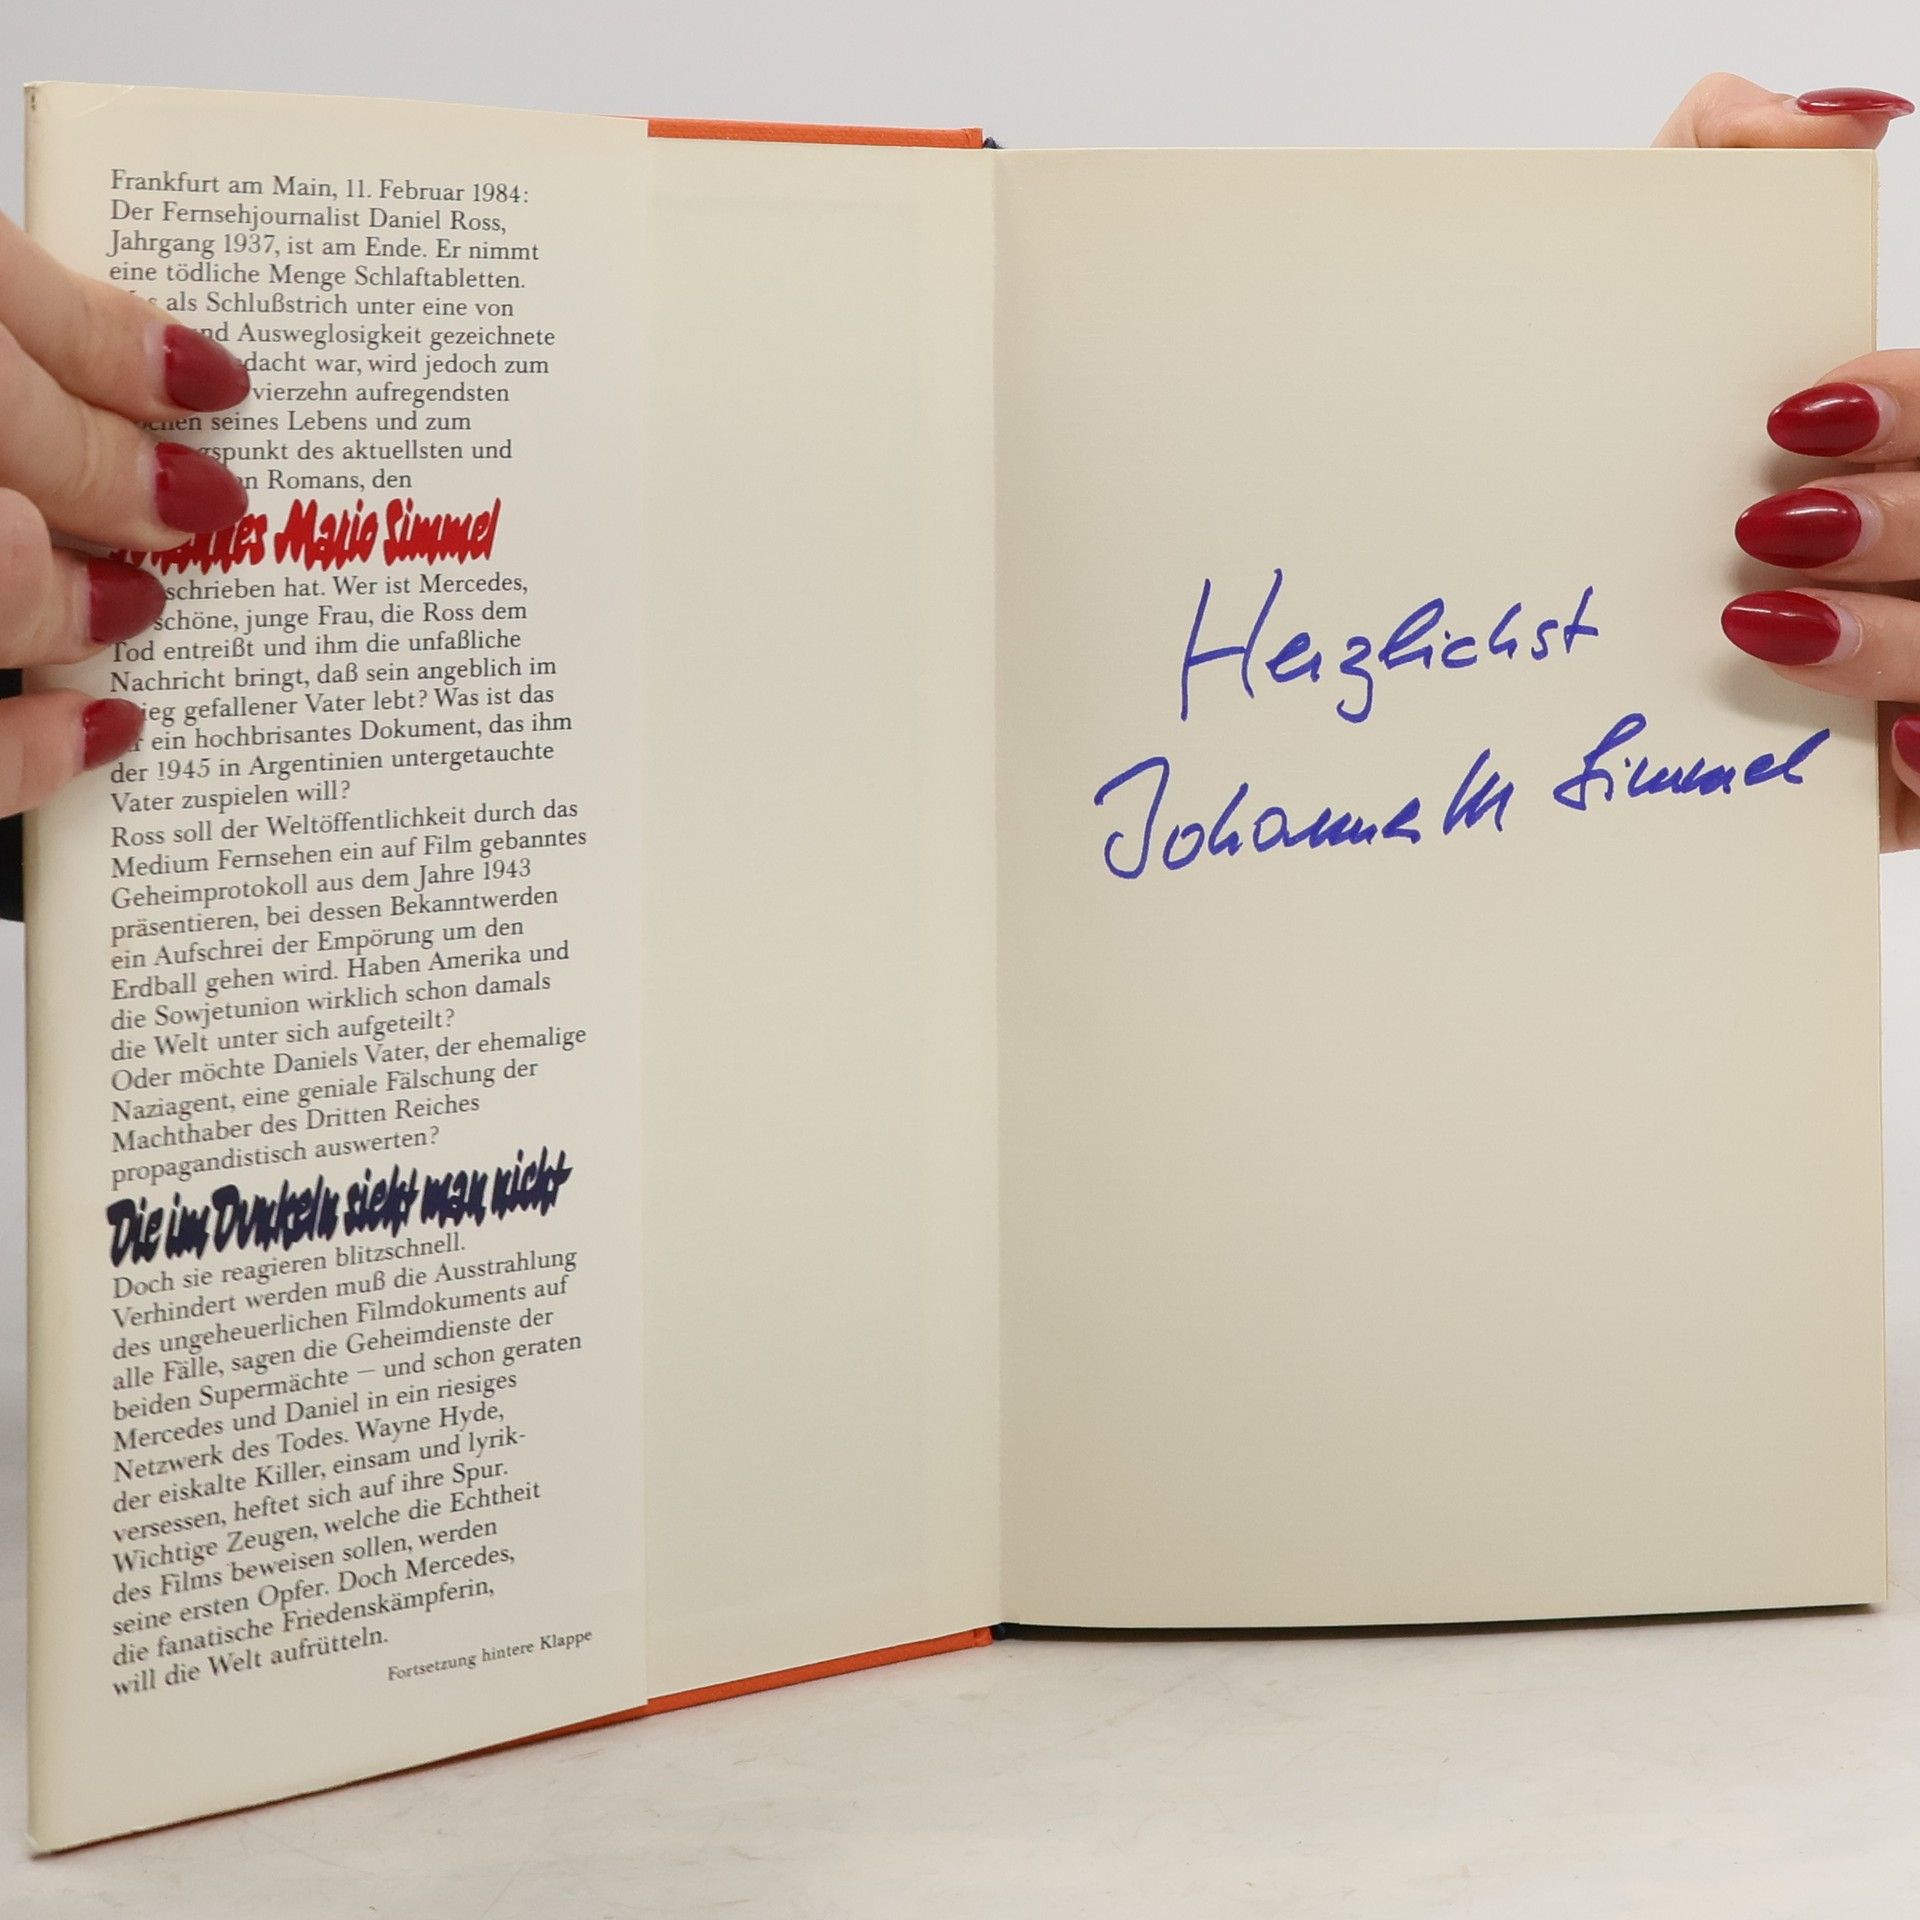 Frankfurt am Main, 11. Februar 1984:
Der Fernsehjournalist Daniel Ross,
Jahrgang 1937, ist am Ende. Er nimmt
eine tödliche Menge Schlaftabletten.
als Schlußstrich unter eine von
Ausweglosigkeit gezeichnete
war, wird jedoch zum
vierzehn aufregendsten
seines Lebens und zum
des aktuellsten und
Romans, den
Mario Simmel
hat. Wer ist Mercedes,
schöne, junge Frau, die Ross dem
Tod entreißt und ihm die unfaßliche
Nachricht bringt, daß sein angeblich im
gefallener Vater lebt? Was ist das
ein hochbrisantes Dokument, das ihm
der 1945 in Argentinien untergetauchte
Vater zuspielen will?
Ross soll der Weltöffentlichkeit durch das
Medium Fernsehen ein auf Film gebanntes
Geheimprotokoll aus dem Jahre 1943
präsentieren, bei dessen Bekanntwerden
ein Aufschrei der Empörung um den
Erdball gehen wird. Haben Amerika und
die Sowjetunion wirklich schon damals
die Welt unter sich aufgeteilt?
Oder möchte Daniels Vater, der ehemalige
Naziagent, eine geniale Fälschung der
Machthaber des Dritten Reiches
propagandistisch auswerten?
Die im Dunkeln sieht man nicht
Doch sie reagieren blitzschnell.
Verhindert werden muß die Ausstrahlung
des ungeheuerlichen Filmdokuments auf
alle Fälle, sagen die Geheimdienste der
beiden Supermächte – und schon geraten
Mercedes und Daniel in ein riesiges
Netzwerk des Todes. Wayne Hyde,
der eiskalte Killer, einsam und lyrik-
versessen, heftet sich auf ihre Spur.
Wichtige Zeugen, welche die Echtheit
des Films beweisen sollen, werden
seine ersten Opfer. Doch Mercedes,
die fanatische Friedenskämpferin,
will die Welt aufrütteln.
Fortsetzung hintere Klappe
Herzlichst
Johannes M Simmel